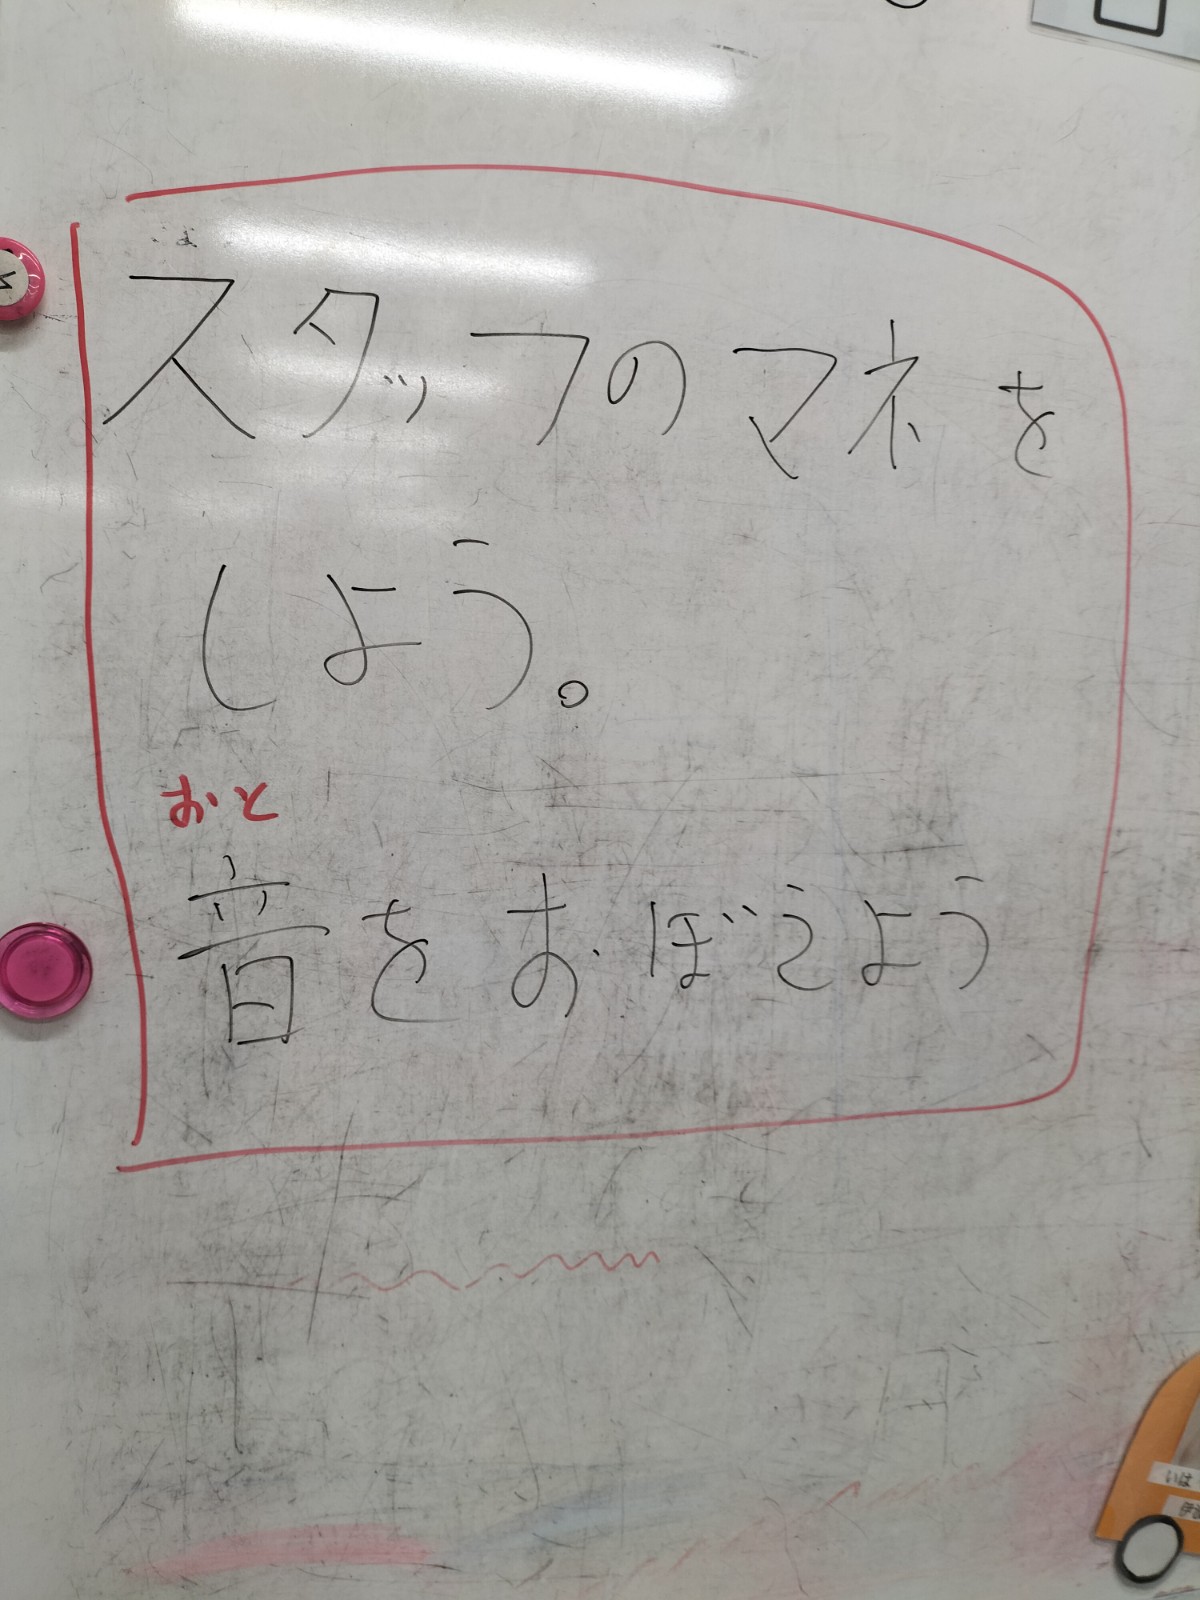 スタッフのマネを
しよう。
おと
音をおぼえよう
いは